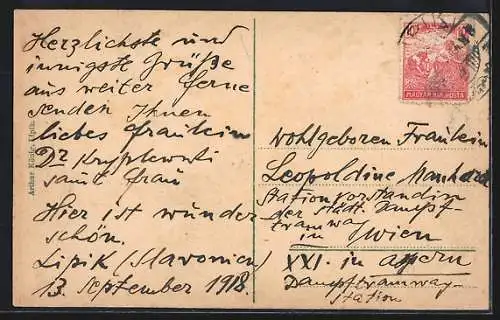 Herzlichste und
innigste Grüße
aus weiter Ferne
senden Ihnen
liebes Fräulein
Dr
samt Frau
Hier ist wunder
schön.
Lipik (Slavonien)
13. September 1918.
Arthur König, Lipik.
MAGYAR KIR. POSTA
Wohlgeboren Fräulein
Leopoldine
Stationsvorstandin
der städt. Dampf-
tramway
in Wien
XXI. in Aspern
Dampftramway-
station